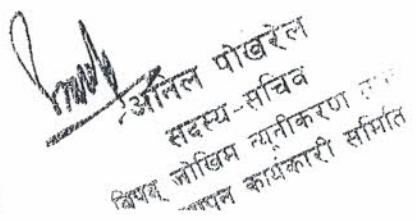 अनिल पोखरेल
सदस्य-सचिव
विपद् जोखिम न्यूनीकरण
कार्यकारी समिति